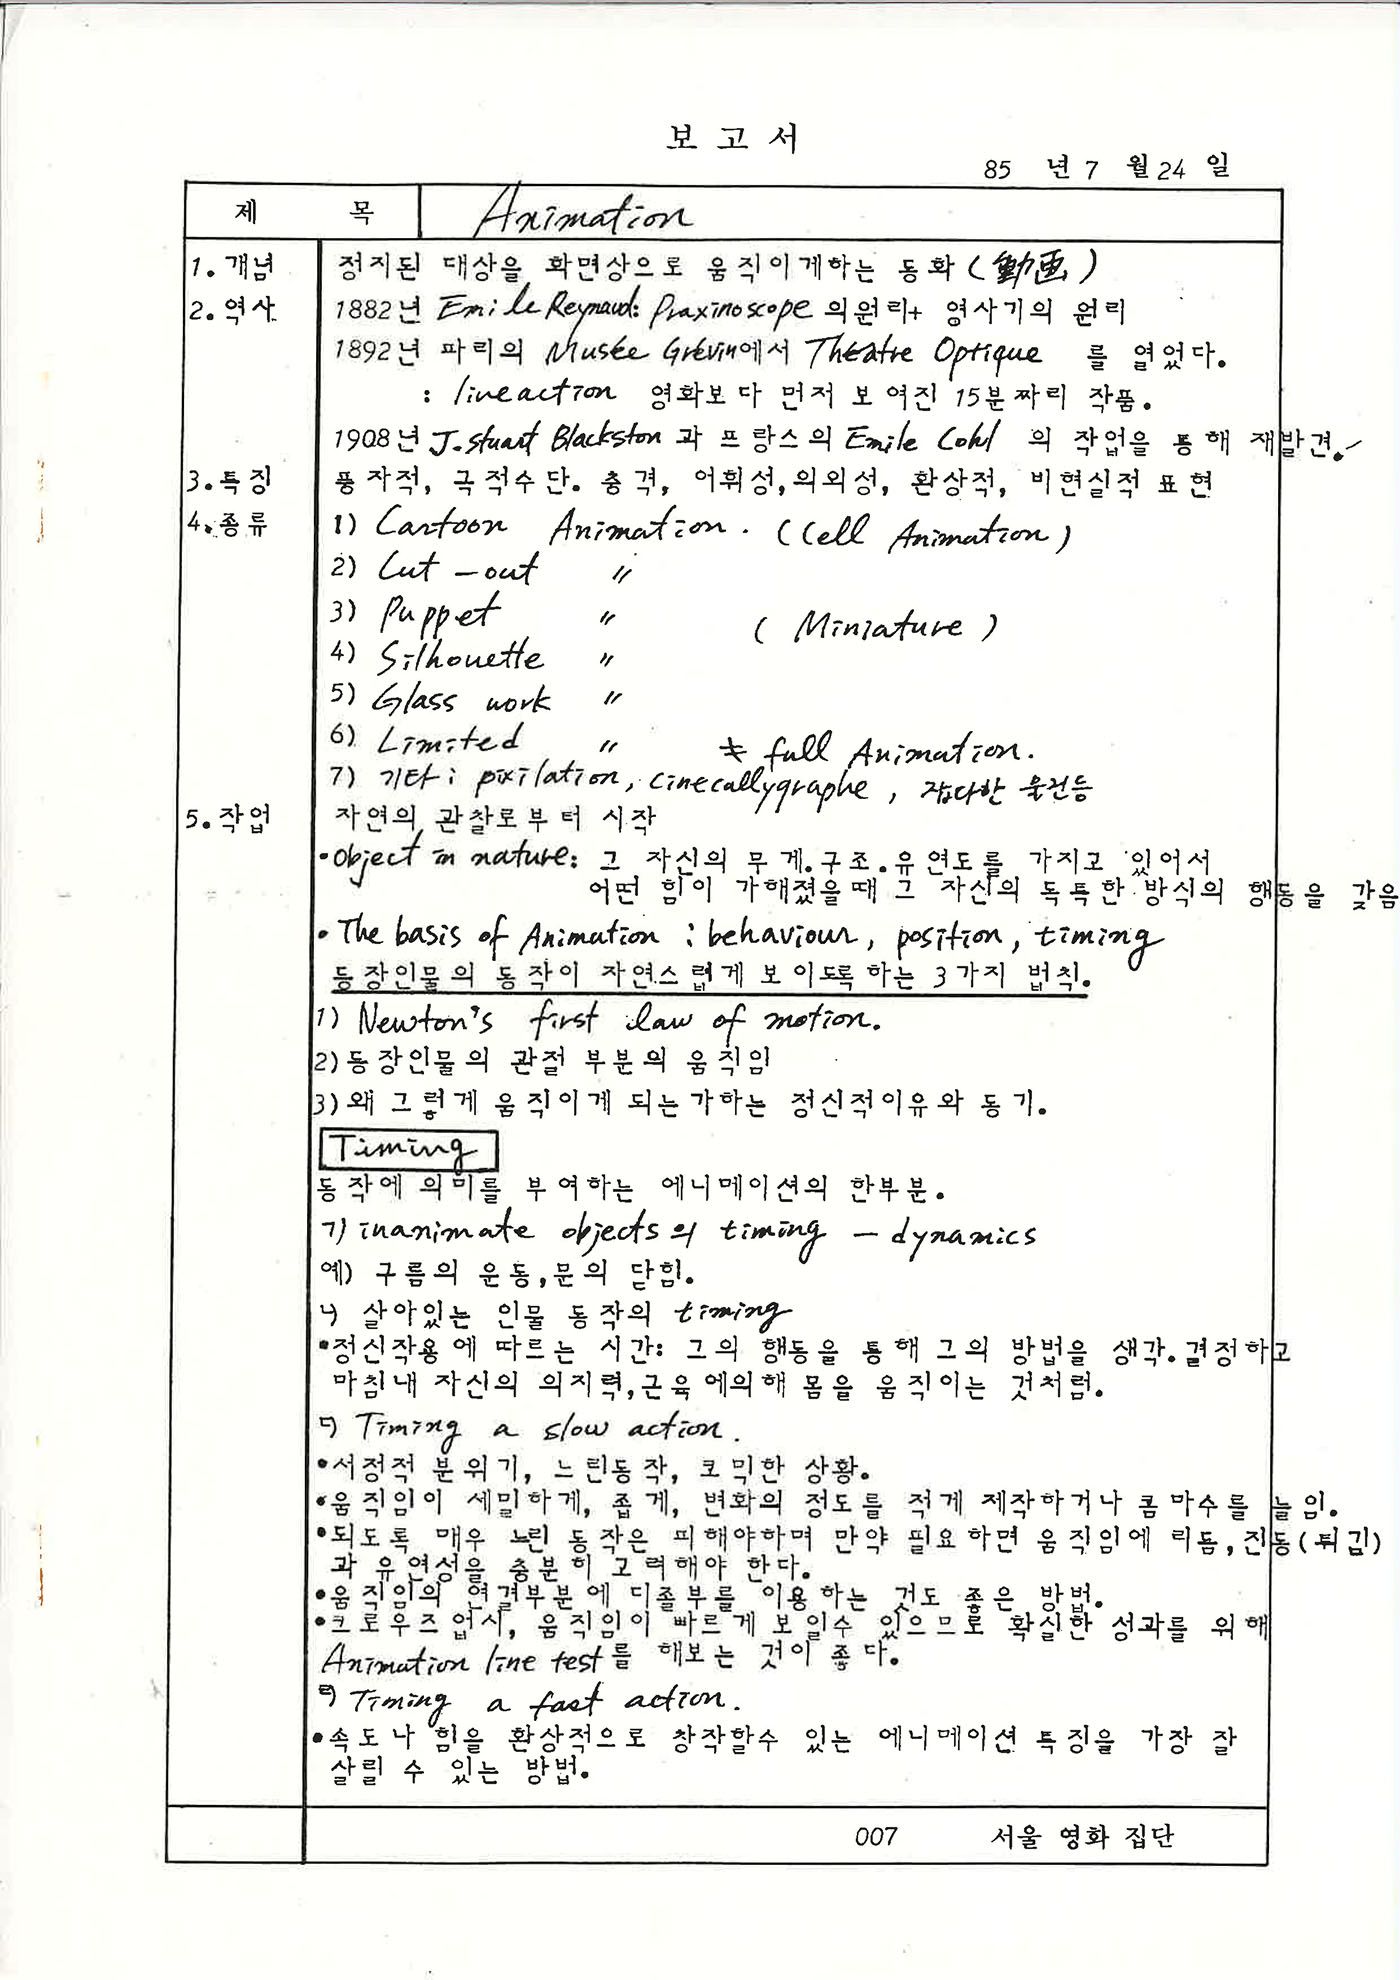 보고서
85 년 7 월 24 일
제 목 Animation
1.개념 정지된 대상을 화면상으로 움직이게하는 동화(動画)
2.역사 1882년 Emile Reynaud: Praxinoscope 의원리+ 영사기의 원리
1892년 파리의 Musée Grévin에서 Théâtre Optique 를 열었다.
: live action 영화보다 먼저 보여진 15분짜리 작품.
1908년 J.stuart Blackston 과 프랑스의 Emile Cohl 의 작업을 통해 재발견.
3.특징 풍자적, 극적수단. 충격, 어휘성,의외성, 환상적, 비현실적 표현
4.종류 1) Cartoon Animation. (Cell Animation)
2) Cut-out 〃
3) Puppet 〃 (Miniature)
4) Silhouette 〃
5) Glass work 〃
6) Limited 〃 ≠ full Animation.
7) 기타: pixilation, cinecallygraphe, 잡다한 물건등
5.작업 자연의 관찰로부터 시작
•object in nature: 그 자신의 무게.구조.유연도를 가지고 있어서
어떤 힘이 가해졌을때 그 자신의 독특한 방식의 행동을 갖음
•The basis of Animation : behaviour, position, timing
등장인물의 동작이 자연스럽게 보이도록하는 3가지 법칙.
1) Newton's first law of motion.
2)등장인물의 관절 부분의 움직임
3)왜 그렇게 움직이게 되는가하는 정신적이유와 동기.
Timing
동작에 의미를 부여하는 에니메이션의 한부분.
ㄱ) inanimate objects의 timing — dynamics
예) 구름의 운동,문의 닫힘.
ㄴ) 살아있는 인물 동작의 timing
•정신작용에 따르는 시간: 그의 행동을 통해 그의 방법을 생각.결정하고
마침내 자신의 의지력,근육에의해 몸을 움직이는 것처럼.
ㄷ) Timing a slow action.
•서정적 분위기, 느린동작, 코믹한 상황.
•움직임이 세밀하게, 좁게, 변화의 정도를 적게 제작하거나 콤마수를 늘임.
•되도록 매우 느린 동작은 피해야하며 만약 필요하면 움직임에 리듬,진동(튀김)
과 유연성을 충분히 고려해야 한다.
•움직임의 연결부분에 디졸부를 이용하는 것도 좋은 방법.
•크로우즈업시, 움직임이 빠르게 보일수 있으므로 확실한 성과를 위해
Animation line test를 해보는 것이 좋다.
ㄹ) Timing a fast action.
•속도나 힘을 환상적으로 창작할수 있는 에니메이션 특징을 가장 잘
살릴 수 있는 방법.
007 서울 영화 집단